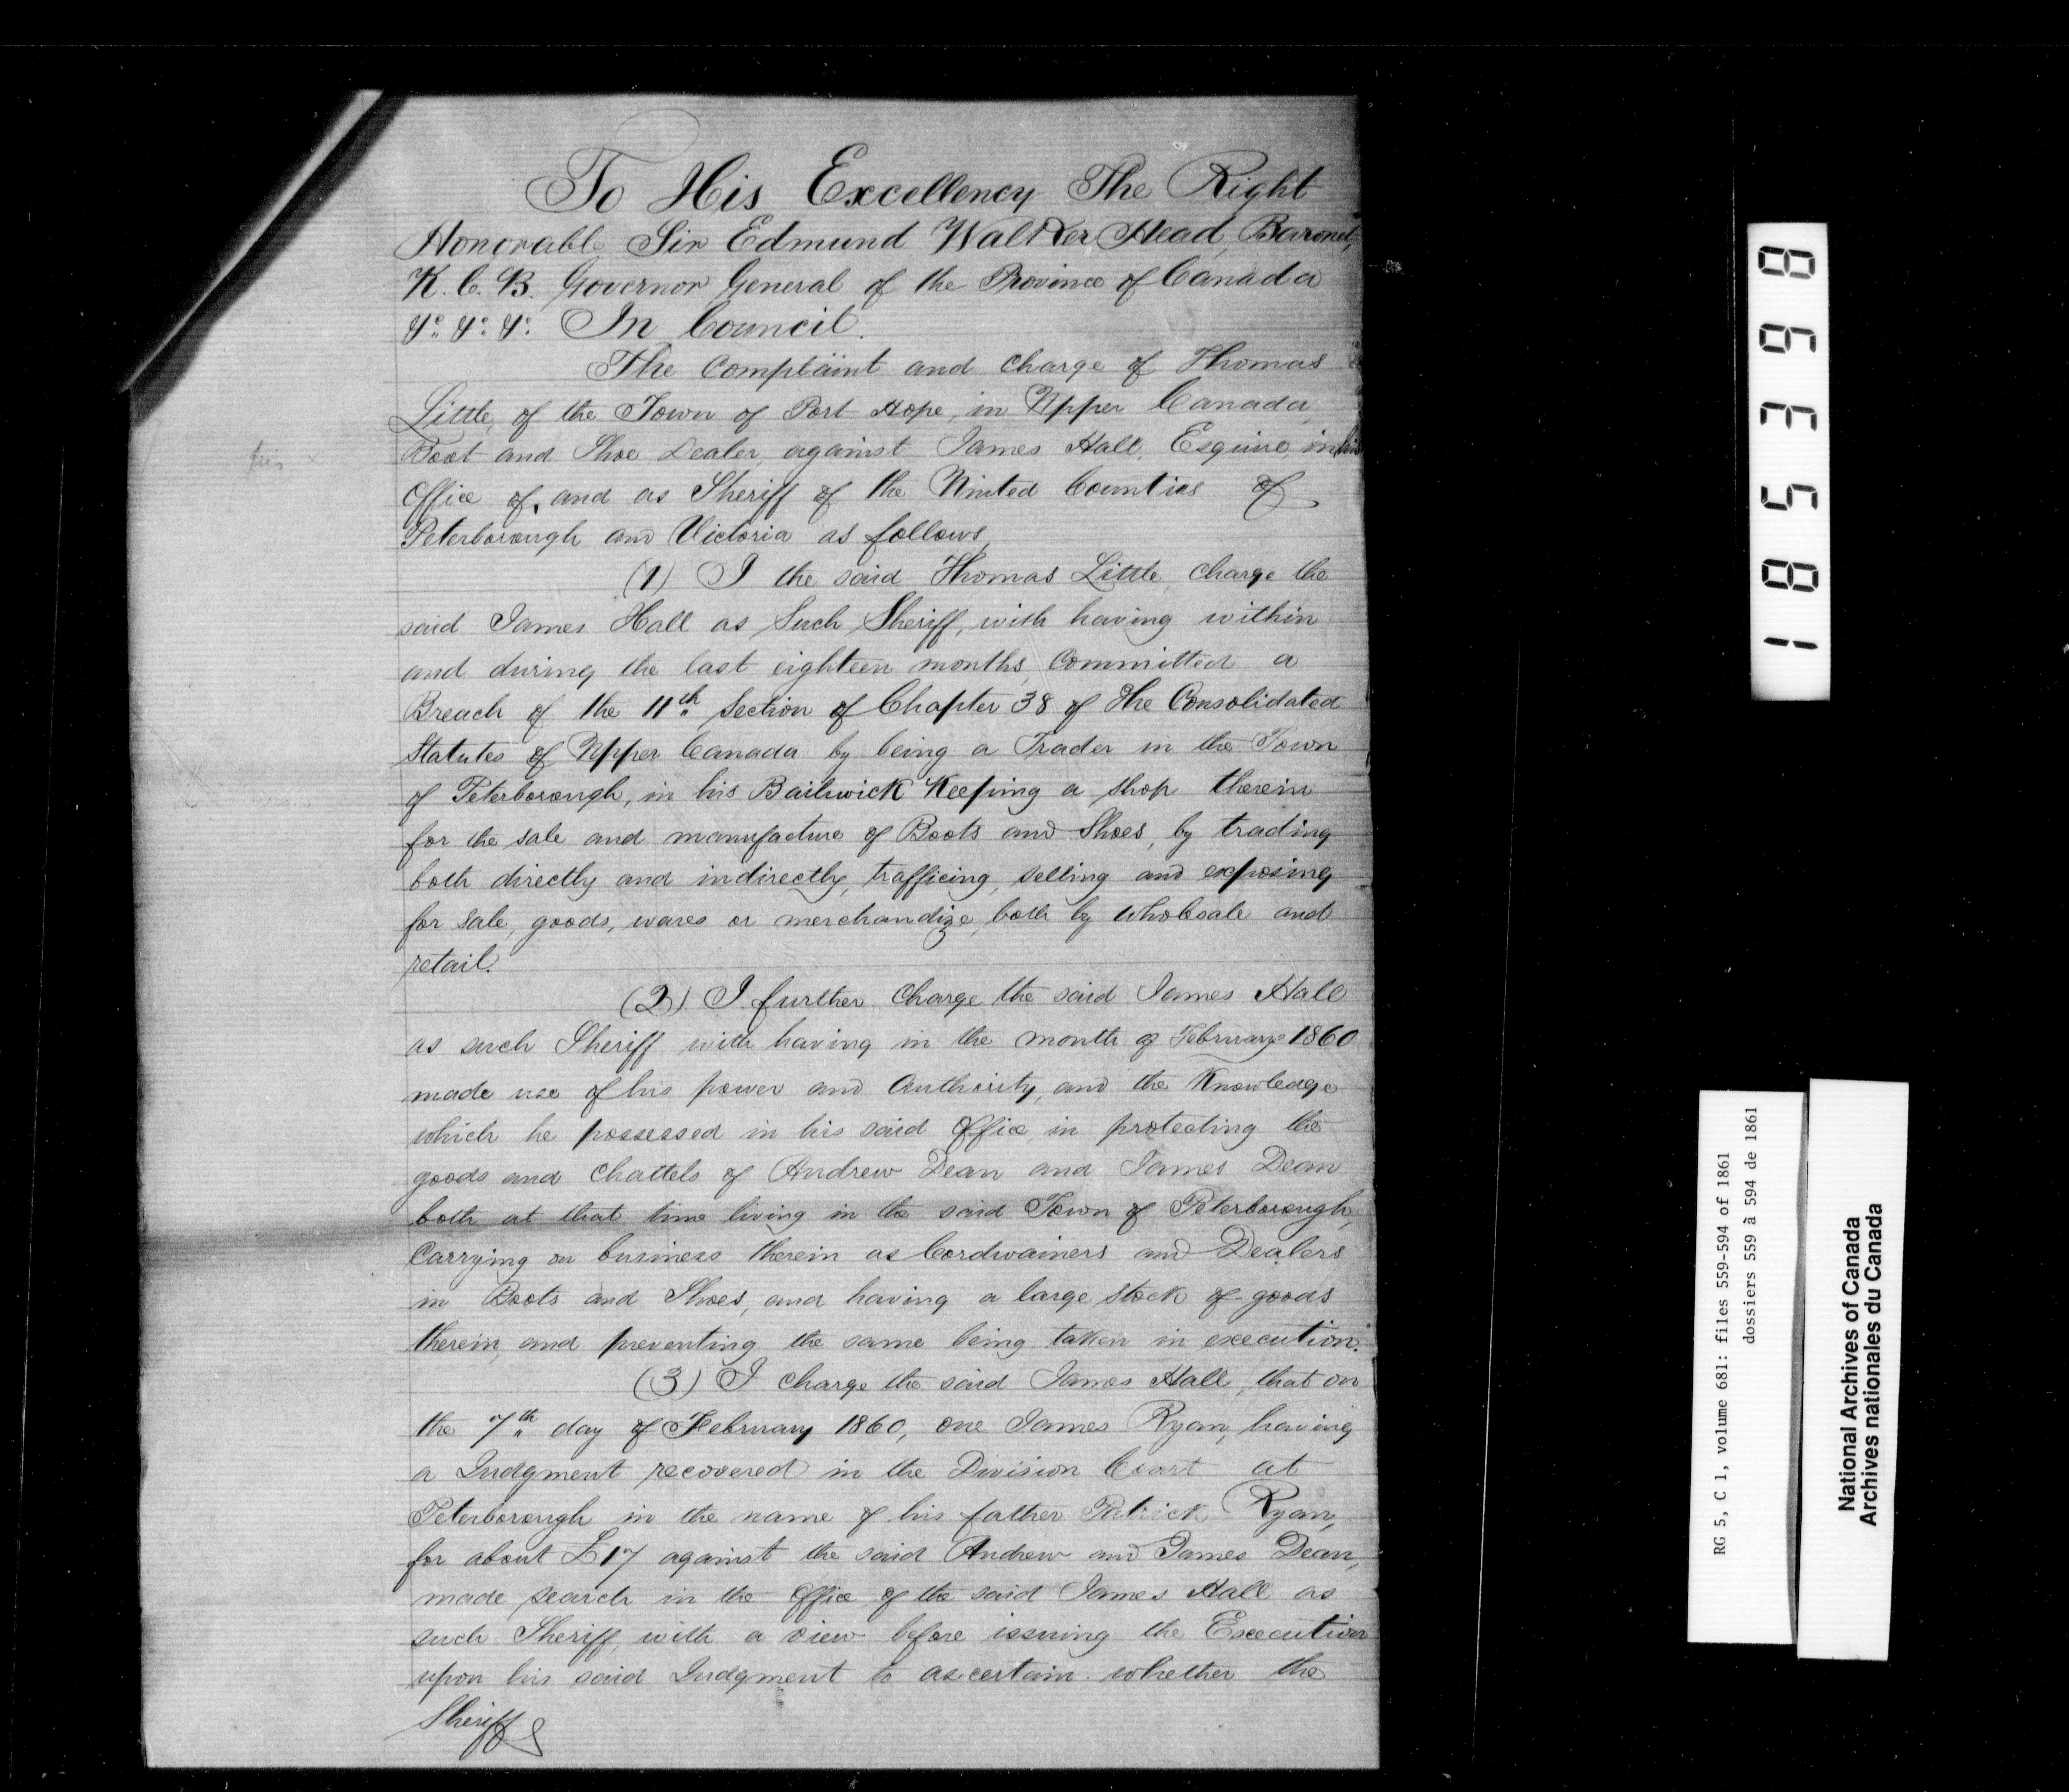 To His Excellency The Right
Honorable Sir Edmund Walker Head, Baronet,
K.C.B. Governor General of the Province of Canada
&c. &c. &c. In Council.
The Complaint and charge of Thomas
Little, of the Town of Port Hope, in Upper Canada,
Boot and Shoe Dealer, against James Hall, Esquire, in his
Office of, and as Sheriff of the United Counties of
Peterborough and Victoria as follows,
(1) I the said Thomas Little, charge the
said James Hall as Such Sheriff, with having within
and during the last eighteen months, Committed a
Breach of the 11th Section of Chapter 38 of The Consolidated
Statutes of Upper Canada by being a Trader in the Town
of Peterborough, in his Bailiwick Keeping a shop therein
for the sale and manufacture of Boots and Shoes, by trading
both directly and indirectly, trafficing, selling and exposing
for sale, goods, wares or merchandize, both by wholesale and
retail.
(2) I further Charge the said James Hall
as such Sheriff with having in the month of February 1860
made use of his power and Authority, and the Knowledge
which he possessed in his said Office, in protecting the
goods and Chattels of Andrew Dean and James Dean
both at that time living in the said Town of Peterborough,
Carrying on business therein as Cordwainers and Dealers
in Boots and Shoes, and having a large stock of goods
therein, and preventing the same being taken in execution.
(3) I charge the said James Hall, that on
the 7th day of February 1860, one James Ryan, having
a Judgment recovered in the Division Court at
Peterborough in the name of his father Patrick Ryan,
for about £17 against the said Andrew and James Dean,
made search in the Office of the said James Hall as
such Sheriff, with a view before issuing the Execution
upon his said Judgment to ascertain whether the
Sheriff
185398
RG 5, C 1, volume 681: files 559-594 of 1861
dossiers 559 à 594 de 1861
National Archives of Canada
Archives nationales du Canada